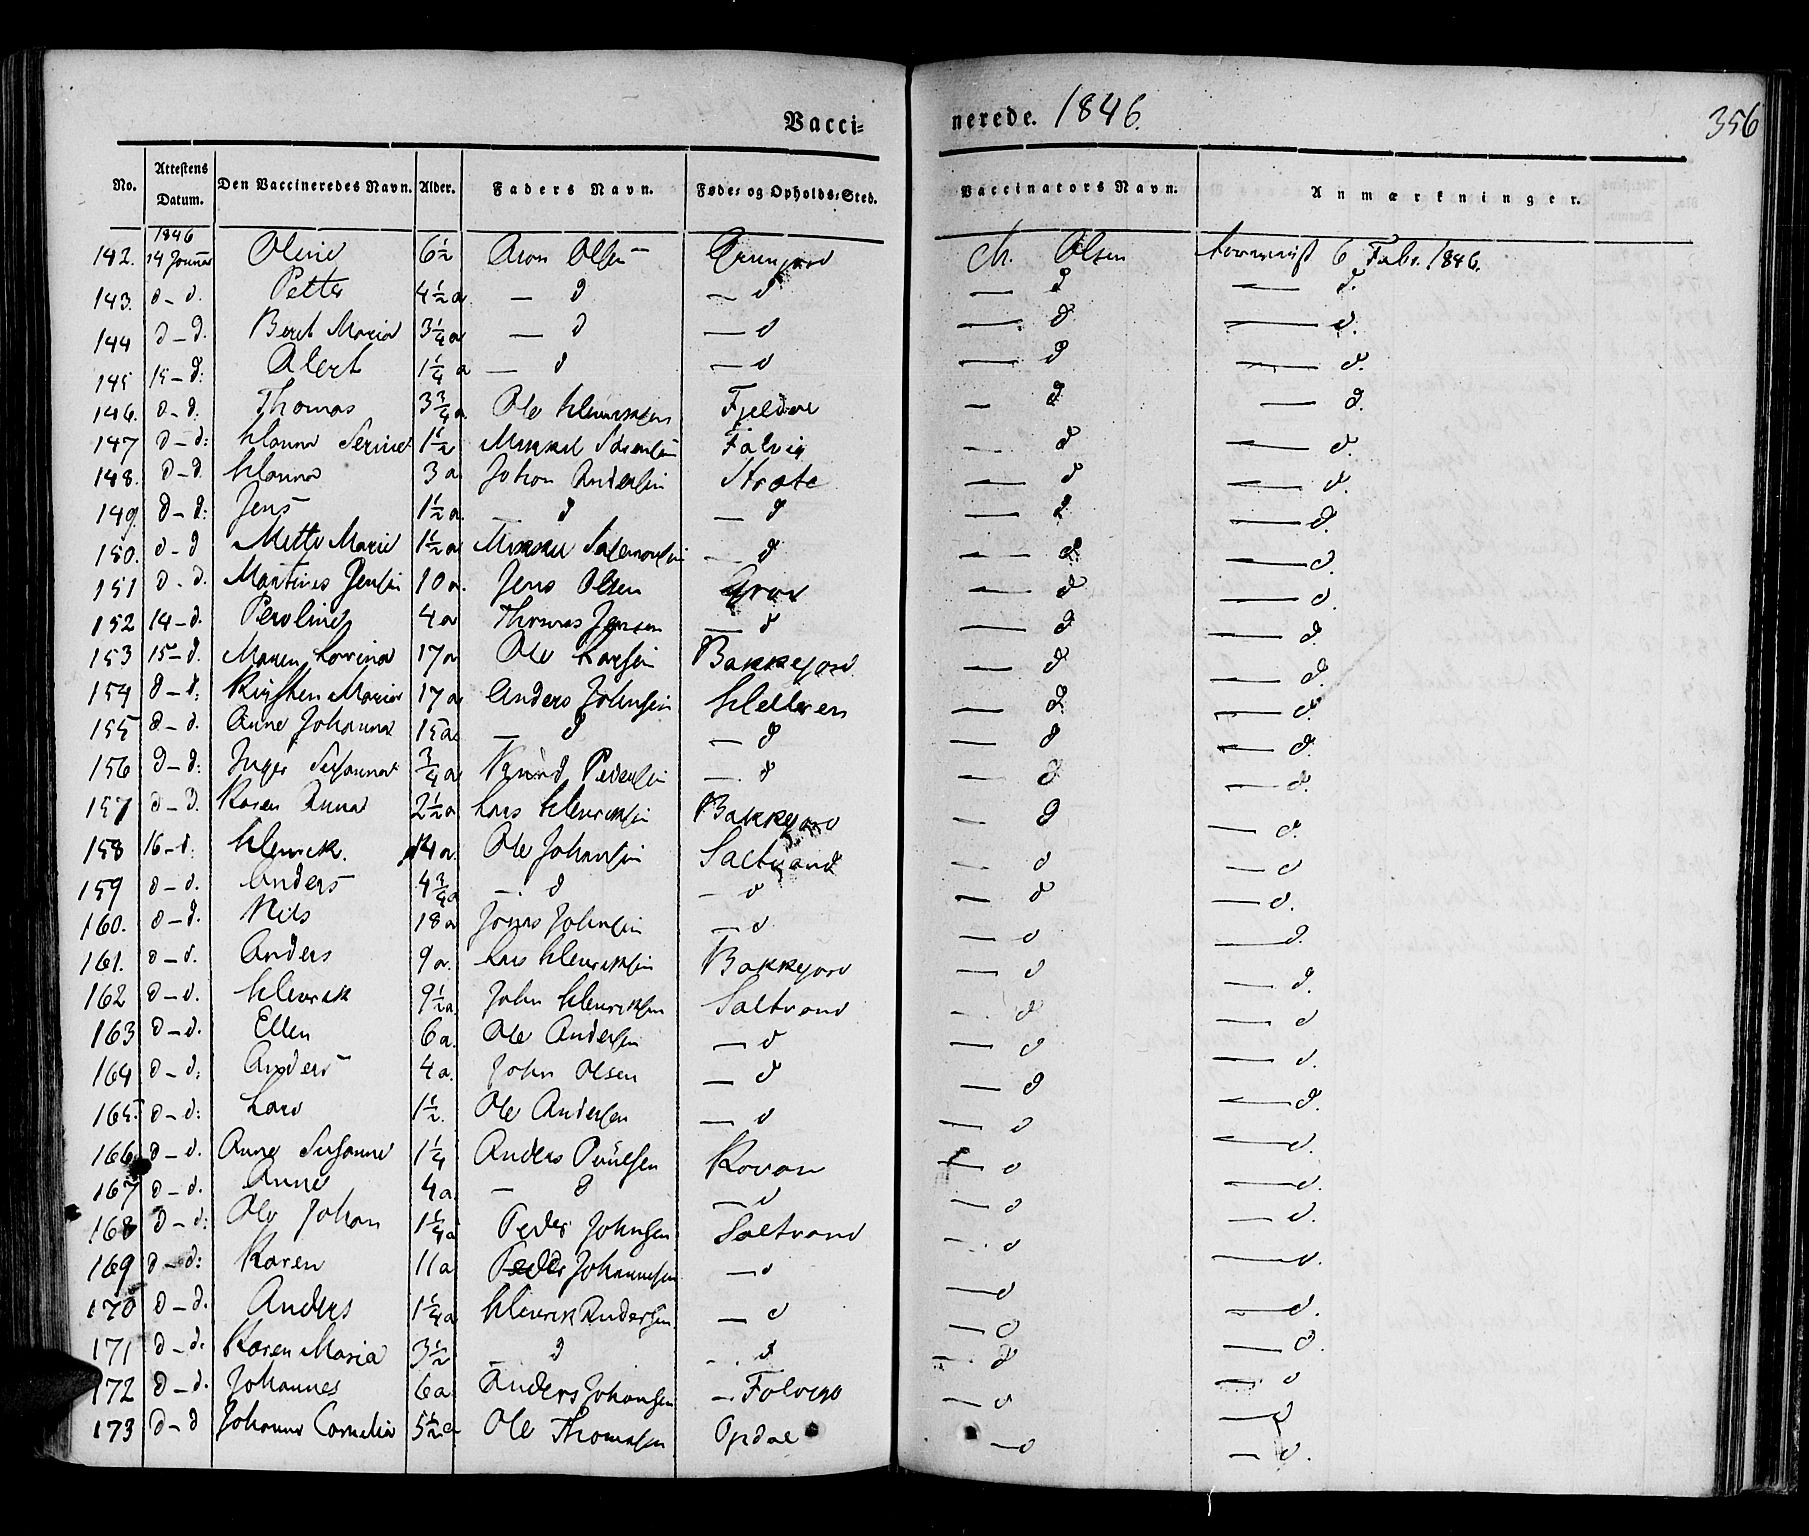 Vacci-
nerede. 1846.
356
No. Attestens Datum. Den Vaccineredes Navn. Alder. Faders Navn. Føde- og Opholds-Sted. Vaccinators Navn. Anmærkninger.
1846
142. 14 Oline 6½ Aron Olsen Olsen 6 Febr. 1846.
143. d – d. Petter 4½ a — d — d — d — d.
144 d – d. Beret Maria 3¼ a — d — d — d — d.
145 15 – d: Alert 1¼ a — d — d — d — d.
146. d – d. Thomas 3¾ a. Ole Henriksen — d — d.
147 d – d: Hanna Serine 1½ Mikkel Falvig — d — d.
148. d – d Hanna 3 a Johan Andersen Stræte — d — d.
149. d – d: Jens 1½ a. — d — d — d — d.
150. d – d Mette Marie 1½ a Mikkel Salamonsen — d — d — d.
151 d – d. Martines Jensen 10 a. Jens Olsen Grav — d — d.
152 14 – d. Peroline 4 a Thomas Jensen — d — d — d.
153 15 – d. Maren Lovina 17 a Ole Larsen Bakkejord — d — d.
154 d – d: Kirsten Maria 17 a Anders Johnsen Helleren — d — d.
155 d – d. Anne Johanna 15 a. — d — d — d — d.
156 d – d: Inger Susanna ¾ a Pedersen — d — d — d.
157 d – d. Karen Anna 2½ a Lars Henriksen Bakkejord — d — d.
158 16 – d: Henrik. 14 a. Ole Johansen Saltvand — d — d
159 d – d. Anders 4¾ a — d — d — d — d.
160. d – d. Nils 18 a Jonas Johnsen — d — d — d.
161. d – d. Anders 9 a. Lars Henriksen Bakkejord — d — d.
162 d – d. Henrik 9½ a. John Henriksen Saltvand — d — d
163 d – d. Ellen 6 a. Ole Andersen — d — d — d.
164 d – d: Anders 4 a. John Olsen — d — d — d.
165 d – d: Lars 1½. Ole Andersen — d — d — d.
166 d – d. Anne Susanne 1¼ Anders Poulsen — d — d.
167 d – d. Anne 4 a. — d — d — d — d.
168 d – d: Ole Johan 1¼ a Peder Johnsen Saltvand — d — d.
169 d – d: Karen 11 a Peder Johannesen — d — d — d.
170 d – d. Anders 1¼ a Henrik Andersen — d — d — d.
171 d – d. Karen Maria 3½ — d — d — d — d
172 d – d. Johannes 6 a Anders Johansen — d — d
173 d – d Johanna Cornelia 5½ a Ole Thomasen Opdal — d — d.